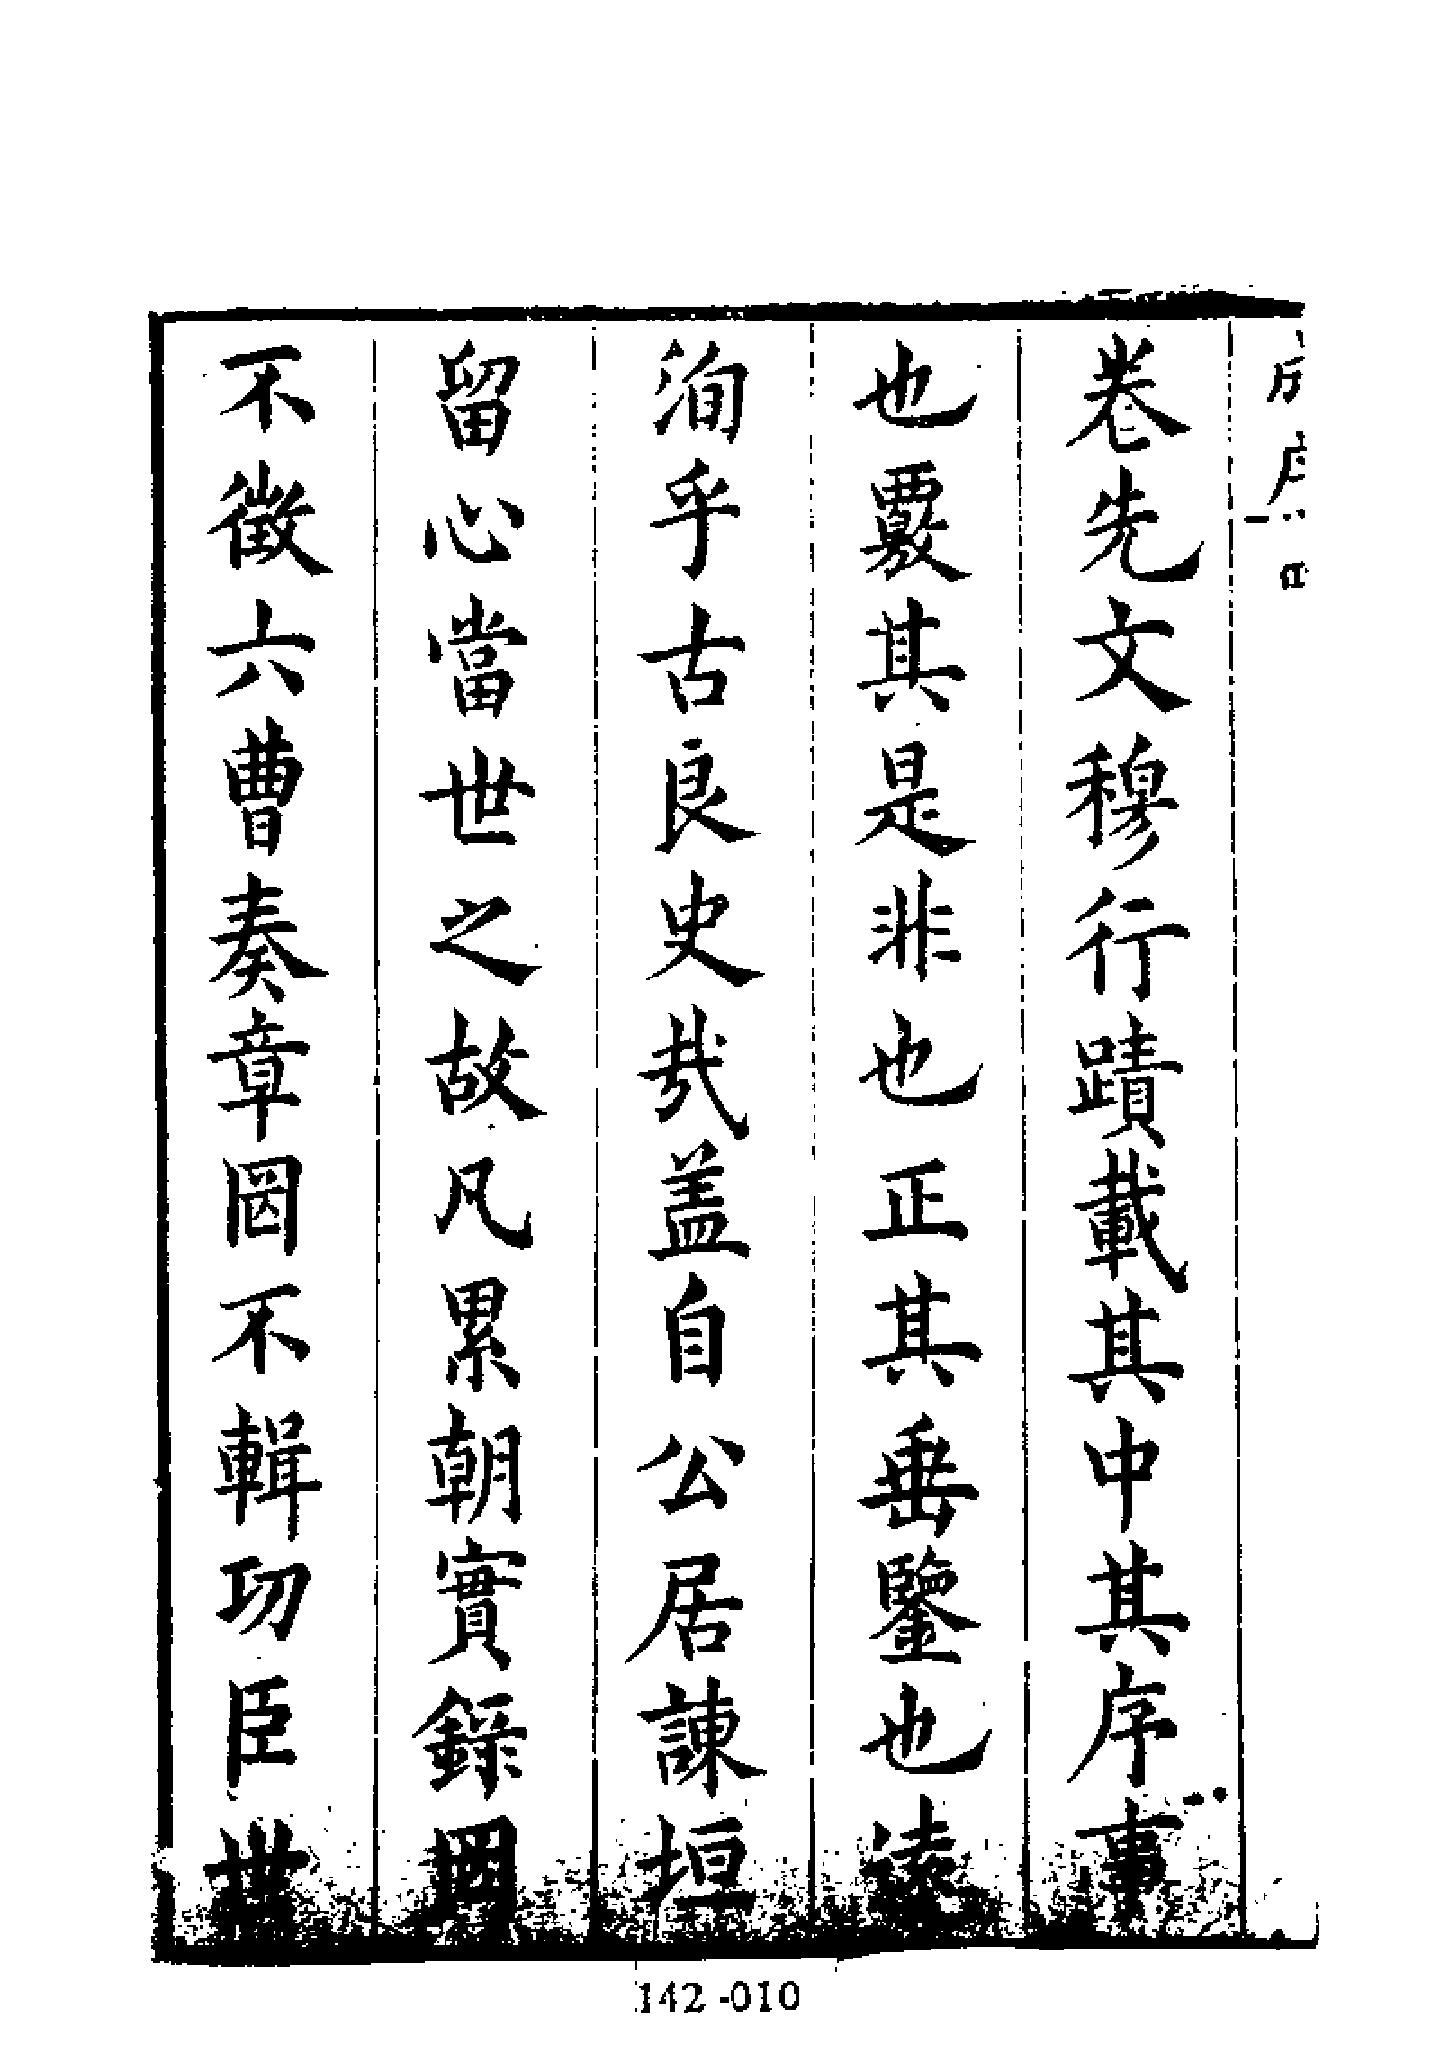 卷先文穆行蹟載其中其序事
也覈其是非也正其垂鑒也遠
洵乎古良史㢤盖自公居諫垣
留心當世之故凡累朝實錄罔
不徵六曹奏章罔不輯功臣世
142-010